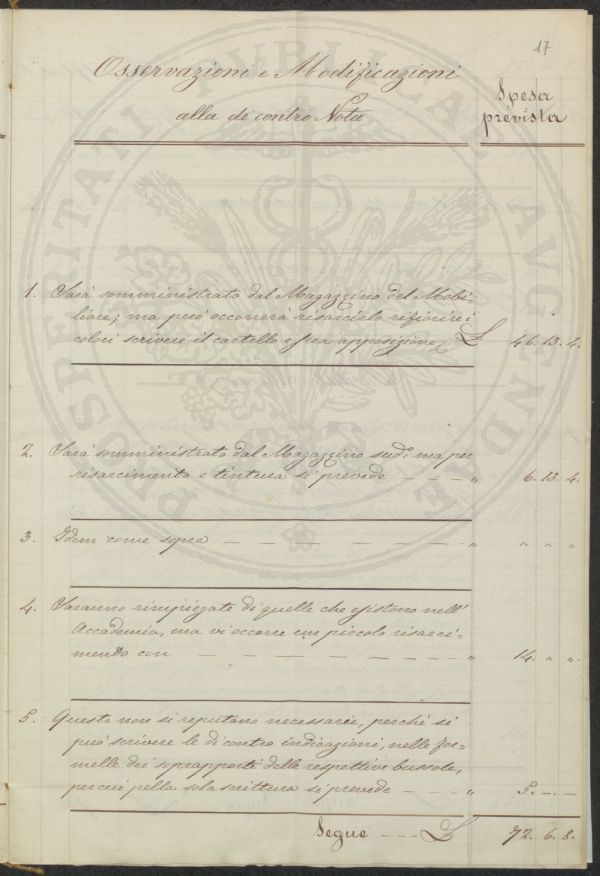 17
Osservazioni e Modificazioni
alla di contro Nota
Spesa
prevista
PROSPERITATI PVBLICAE AVGENDAE
1. Sarà somministrato dal Magazzino del Mobi-
liare; ma però occorrerà risarcirlo rifiorire i
colori scrivere il cartello e sua apposizione £ 46. 13. 4.
2. Sarà somministrato dal Magazzino sud: ma per
risarcimento e tintura si prevede — — — " 6. 13. 4.
3. Idem come sopra — — — — — — — " " " "
4. Saranno rimpiegate di quelle che esistono nell'
Accademia, ma vi occorre un piccolo risarci-
mento con — — — — — — " 14. " "
5. Queste non si reputano necessarie, perchè si
può scrivere le di contro indicazioni, nelle for-
melle dei soprapporti delle respettive bussole,
percui pella sola scrittura si prevede — — — " 5. — . —
Segue — — — £ 72. 6. 8.